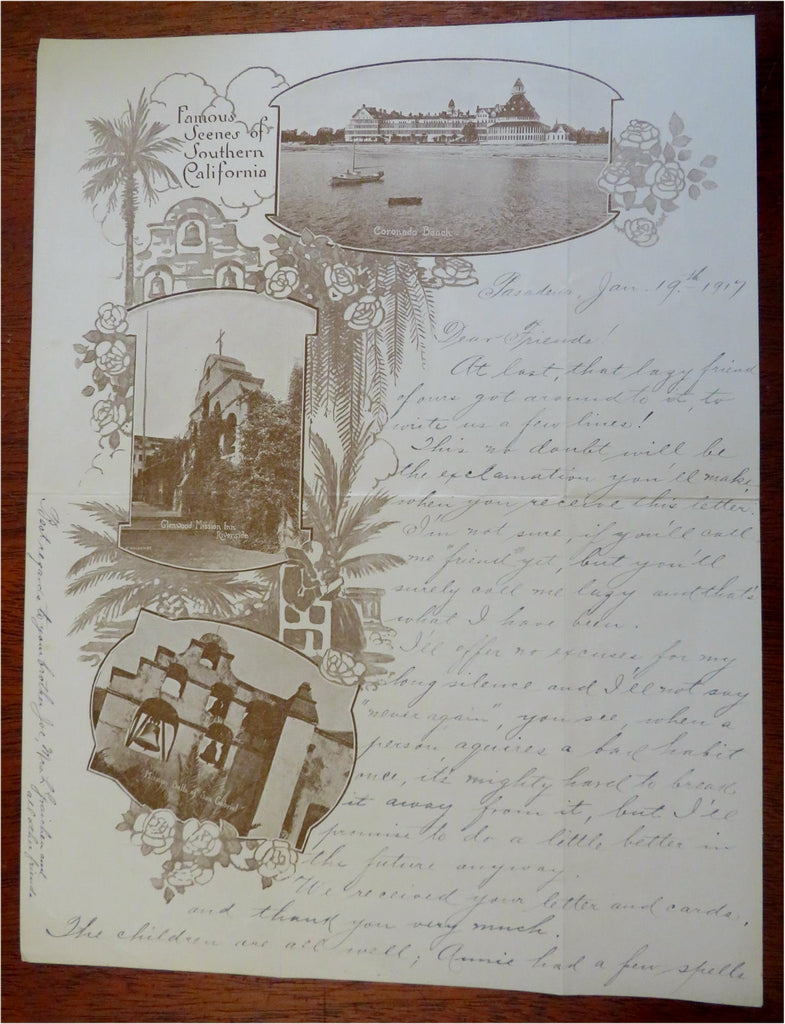 Famous
Scenes of
Southern
California
Coronado Beach
Glenwood Mission Inn
Riverside
Mission Bells San Gabriel
Pasadena, Jan. 19.th 1917
Dear Friends!
At last, that lazy friend
of ours got around to it, to
write us a few lines!
This no doubt will be
the exclamation you'll make,
when you receive this letter.
I'm not sure, if you'll call
me "friend" yet, but you'll
surely call me lazy and that's
what I have been.
I'll offer no excuses for my
long silence and I'll not say
"never again", you see, when a
person aquires a bad habit
once, it's mighty hard to break
it away from it, but I'll
promise to do a little better in
the future anyway.
We received your letter and cards,
and thank you very much.
The children are all well; Annie had a few spells
Best regards to your brother Joe, Mrs. L. and
all other friends